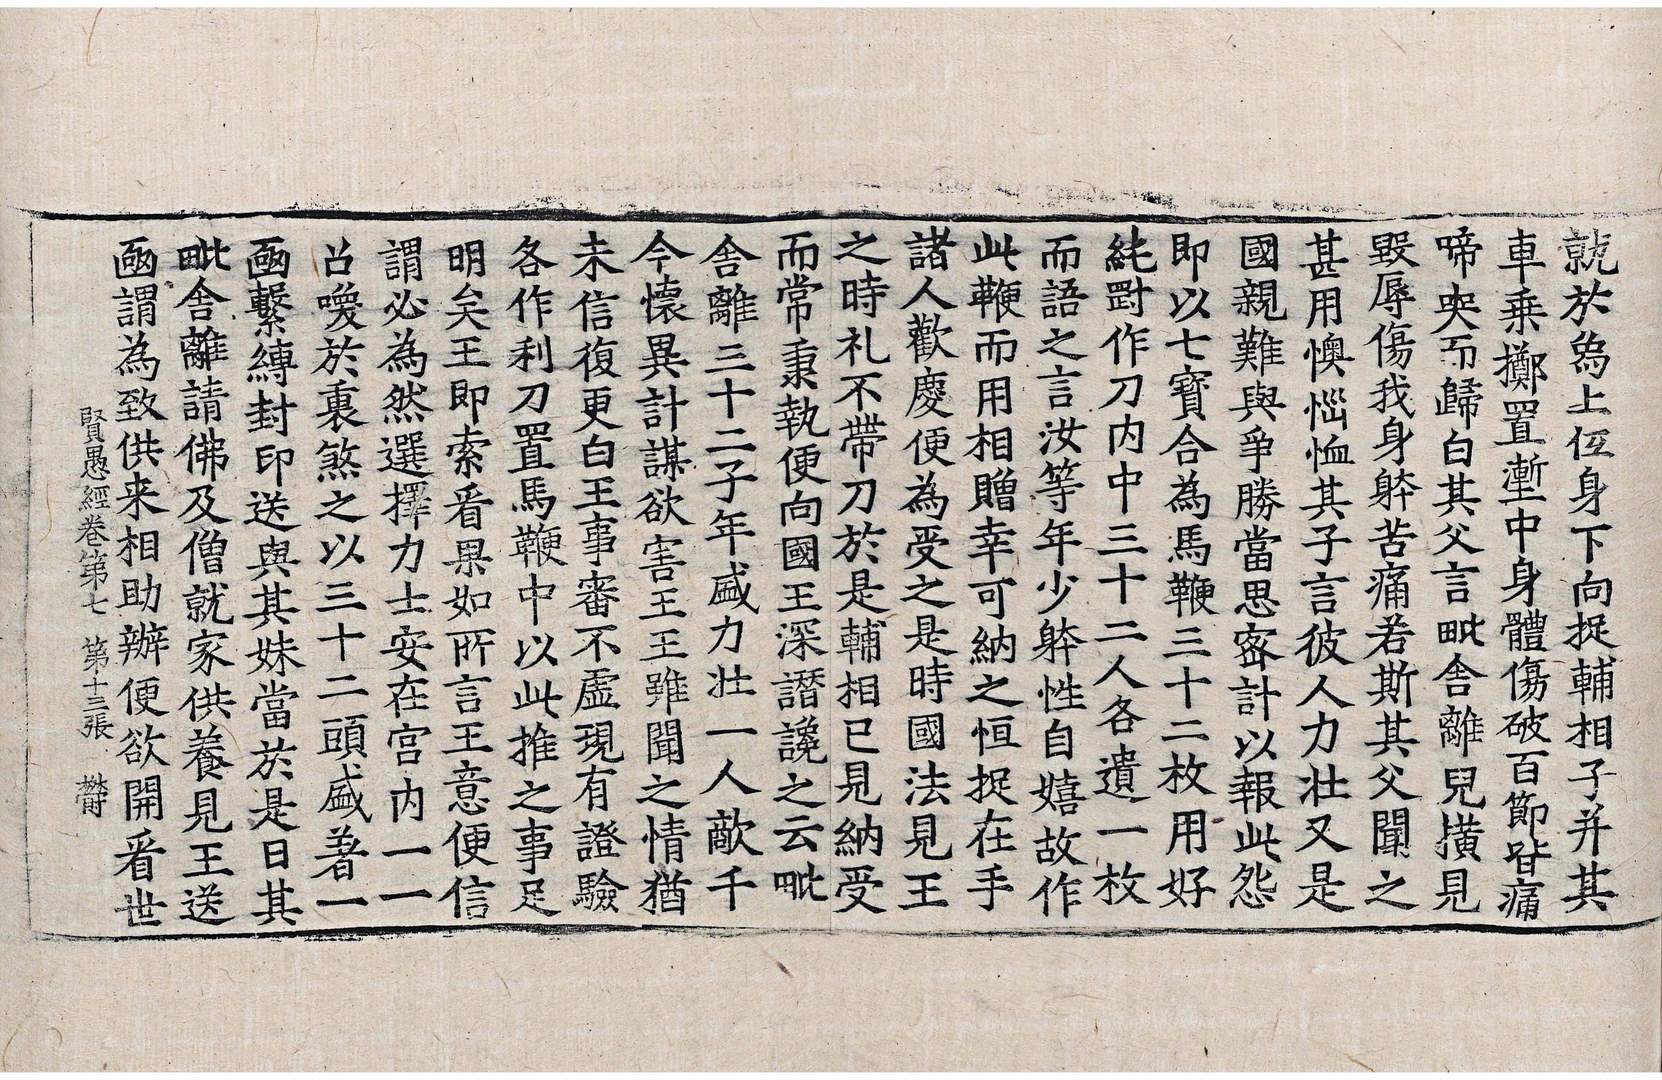 就於爲上伍身下向捉輔相子并其
車乘擲置塹中身體傷破百節皆痛
啼哭而歸白其父言毗舍離兒撗見
毀辱傷我身躰苦痛若斯其父聞之
甚用懊惱恤其子言彼人力壮又是
國親難與爭勝當思密計以報此怨
即以七寶合為馬鞭三十二枚用好
純剛作刀内中三十二人各遺一枚
而語之言汝等年少躰性自嬉故作
此鞭而用相贈幸可納之恒捉在手
諸人歡慶便為受之是時國法見王
之時礼不帶刀於是輔相已見納受
而常秉執便向國王深譖讒之云毗
舍離三十二子年盛力壮一人敵千
今懷異計謀欲害王王雖聞之情猶
未信復更白王事審不虛現有證驗
各作利刀置馬鞭中以此推之事足
明矣王即索看果如所言王意便信
謂必為然選擇力士安在宫内一一
召喚於裏煞之以三十二頭盛著一
凾繫縛封印送與其妹當於是日其
毗舍離請佛及僧就家供養見王送
凾謂為致供来相助辦便欲開看世
賢愚經卷第七 第十三張 欝